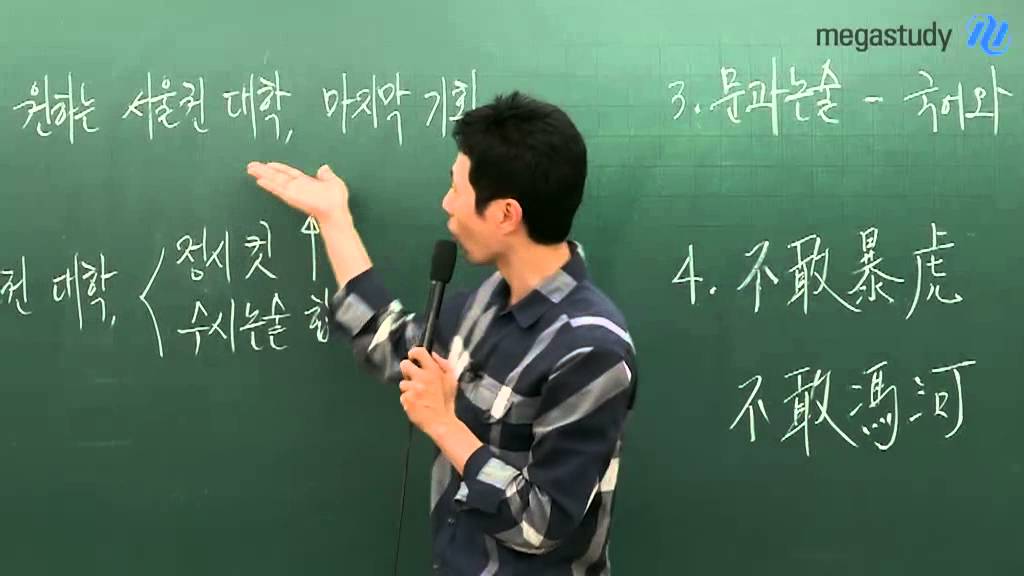 megastudy
원하는 서울권 대학, 마지막 기회
권 대학,
정시 컷 ↑
수시논술
3. 문과논술 - 국어와
4. 不敢暴虎
不敢馮河